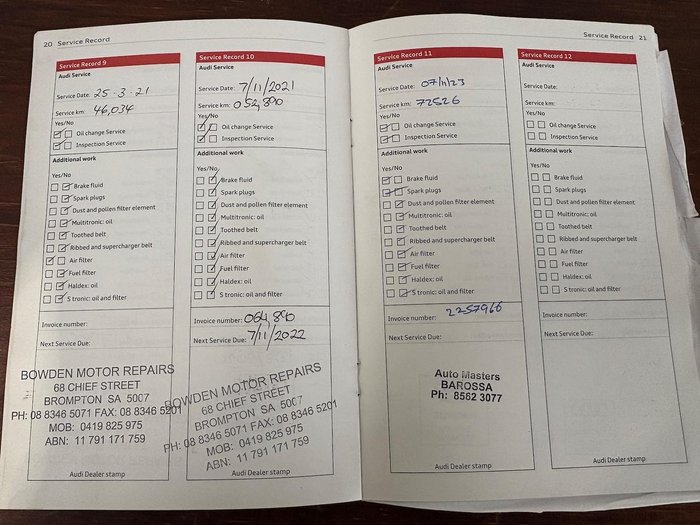 20 Service Record
Service Record 9
Audi Service
Service Date: 25·3·21
Service km: 46,034
Yes/No
Oil change Service
Inspection Service
Additional work
Yes/No
Brake fluid
Spark plugs
Dust and pollen filter element
Multitronic: oil
Toothed belt
Ribbed and supercharger belt
Air filter
Fuel filter
Haldex: oil
S tronic: oil and filter
Invoice number:
Next Service Due:
BOWDEN MOTOR REPAIRS
68 CHIEF STREET
BROMPTON SA 5007
PH: 08 8346 5071 FAX: 08 8346 5201
MOB: 0419 825 975
ABN: 11 791 171 759
Audi Dealer stamp
Service Record 10
Audi Service
Service Date: 7/11/2021
Service km: 052,890
Yes/No
Oil change Service
Inspection Service
Additional work
Yes/No
Brake fluid
Spark plugs
Dust and pollen filter element
Multitronic: oil
Toothed belt
Ribbed and supercharger belt
Air filter
Fuel filter
Haldex: oil
S tronic: oil and filter
Invoice number: 064,890
Next Service Due: 7/11/2022
BOWDEN MOTOR REPAIRS
68 CHIEF STREET
BROMPTON SA 5007
PH: 08 8346 5071 FAX: 08 8346 5201
MOB: 0419 825 975
ABN: 11 791 171 759
Audi Dealer stamp
Service Record 21
Service Record 11
Audi Service
Service Date: 07/11/23
Service km: 72526
Yes/No
Oil change Service
Inspection Service
Additional work
Yes/No
Brake fluid
Spark plugs
Dust and pollen filter element
Multitronic: oil
Toothed belt
Ribbed and supercharger belt
Air filter
Fuel filter
Haldex: oil
S tronic: oil and filter
Invoice number: 2257966
Next Service Due:
Auto Masters
BAROSSA
Ph: 8562 3077
Audi Dealer stamp
Service Record 12
Audi Service
Service Date:
Service km:
Yes/No
Oil change Service
Inspection Service
Additional work
Yes/No
Brake fluid
Spark plugs
Dust and pollen filter element
Multitronic: oil
Toothed belt
Ribbed and supercharger belt
Air filter
Fuel filter
Haldex: oil
S tronic: oil and filter
Invoice number:
Next Service Due:
Audi Dealer stamp